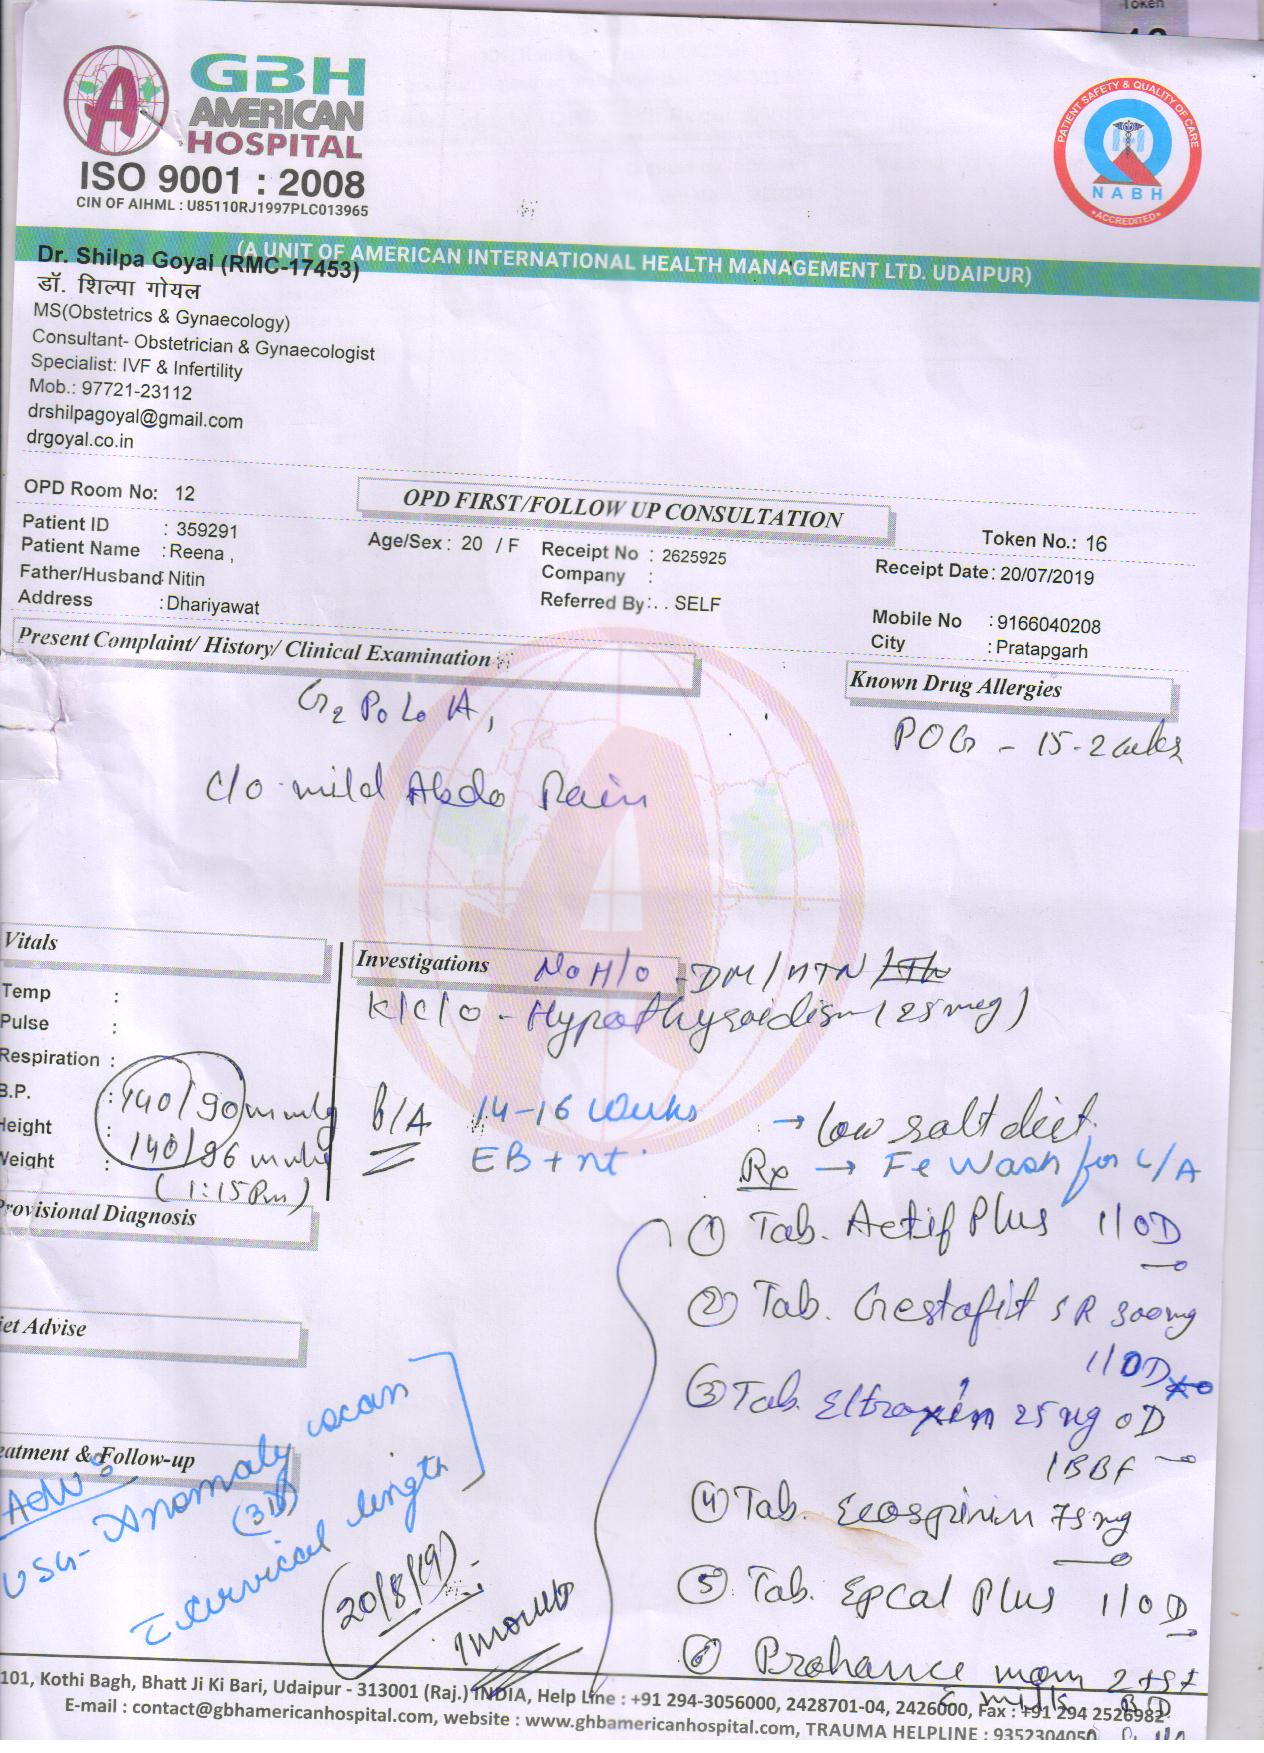 Token
GBH
AMERICAN
HOSPITAL
ISO 9001 : 2008
CIN OF AIHML : U85110RJ1997PLC013965
PATIENT SAFETY & QUALITY OF CARE
NABH
ACCREDITED
(A UNIT OF AMERICAN INTERNATIONAL HEALTH MANAGEMENT LTD. UDAIPUR)
Dr. Shilpa Goyal (RMC-17453)
डॉ. शिल्पा गोयल
MS(Obstetrics & Gynaecology)
Consultant- Obstetrician & Gynaecologist
Specialist: IVF & Infertility
Mob.: 97721-23112
drshilpagoyal@gmail.com
drgoyal.co.in
OPD Room No: 12
OPD FIRST/FOLLOW UP CONSULTATION
Token No.: 16
Patient ID : 359291
Age/Sex : 20 / F
Receipt No : 2625925
Receipt Date : 20/07/2019
Patient Name : Reena ,
Company :
Father/Husband : Nitin
Referred By : . . SELF
Mobile No : 9166040208
Address : Dhariyawat
City : Pratapgarh
Present Complaint/ History/ Clinical Examination
Known Drug Allergies
G2 P0 L0 A1
POG - 15-2 wks
c/o mild Abdo Pain
Vitals
Investigations
No H/O - DM/HTN
K/C/O - Hypothyroidism (25 mcg)
Temp :
Pulse :
Respiration :
B.P. : 140/90 mmHg
Height :
140/96 mmHg
Weight :
(1:15 Pm)
P/A 14-16 weeks
EB + nt.
→ Low salt diet.
Rx → Fe Wash for L/A
Provisional Diagnosis
① Tab. Actif Plus 1 OD
② Tab. Gestofit SR 300mg
1 OD
iet Advise
③ Tab. Eltroxin 25 mg OD
1 BBF
eatment & Follow-up
Adv:
USG- Anomaly scan
(3D)
cervical length
④ Tab. Ecosprin 75 mg
20/8/19
1 month
⑤ Tab. Epcal Plus 1 OD
⑥ Prohance mom 2 tsf
c milk BD
101, Kothi Bagh, Bhatt Ji Ki Bari, Udaipur - 313001 (Raj.) INDIA, Help Line : +91 294-3056000, 2428701-04, 2426000, Fax : +91 294 2526982
E-mail : contact@gbhamericanhospital.com, website : www.ghbamericanhospital.com, TRAUMA HELPLINE : 9352304050